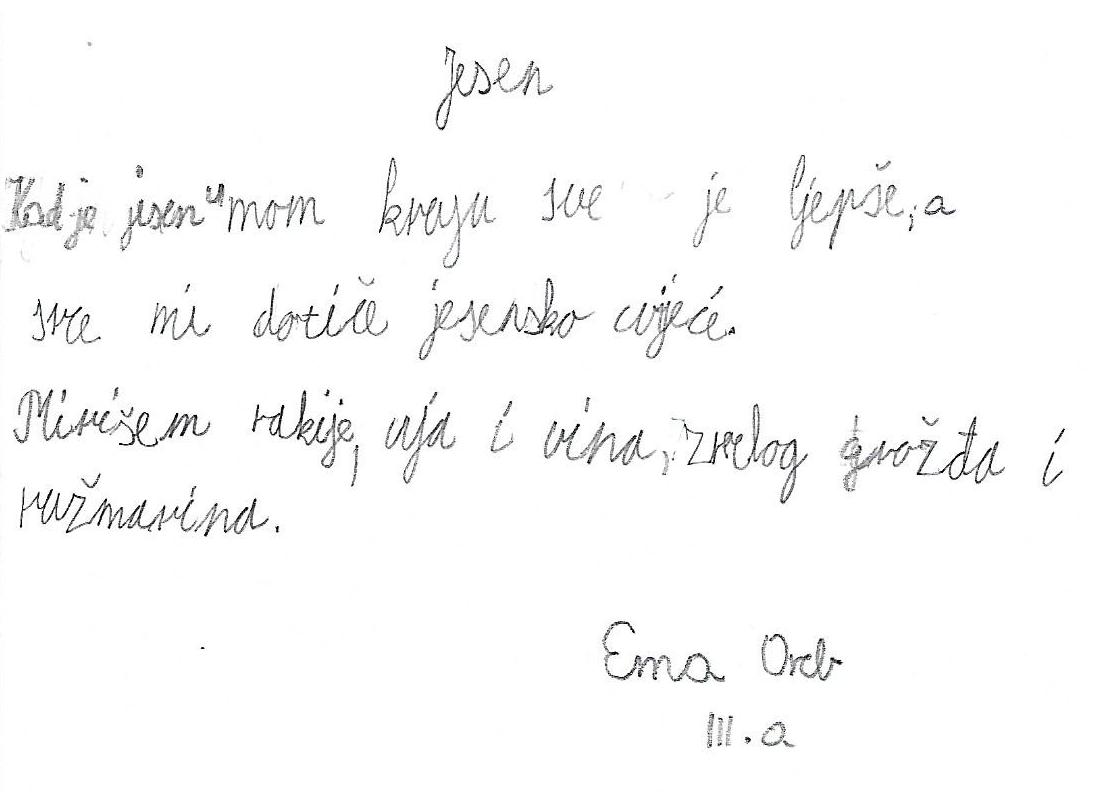 Jesen
Kad je jisen u mom kraju sve je ljepše, a
sve mi dotiče jesensko cvijeće.
Mirišem rakije, uja i vina, zrelog grožđa i
ružmarina.
Ema Oreb
III. a